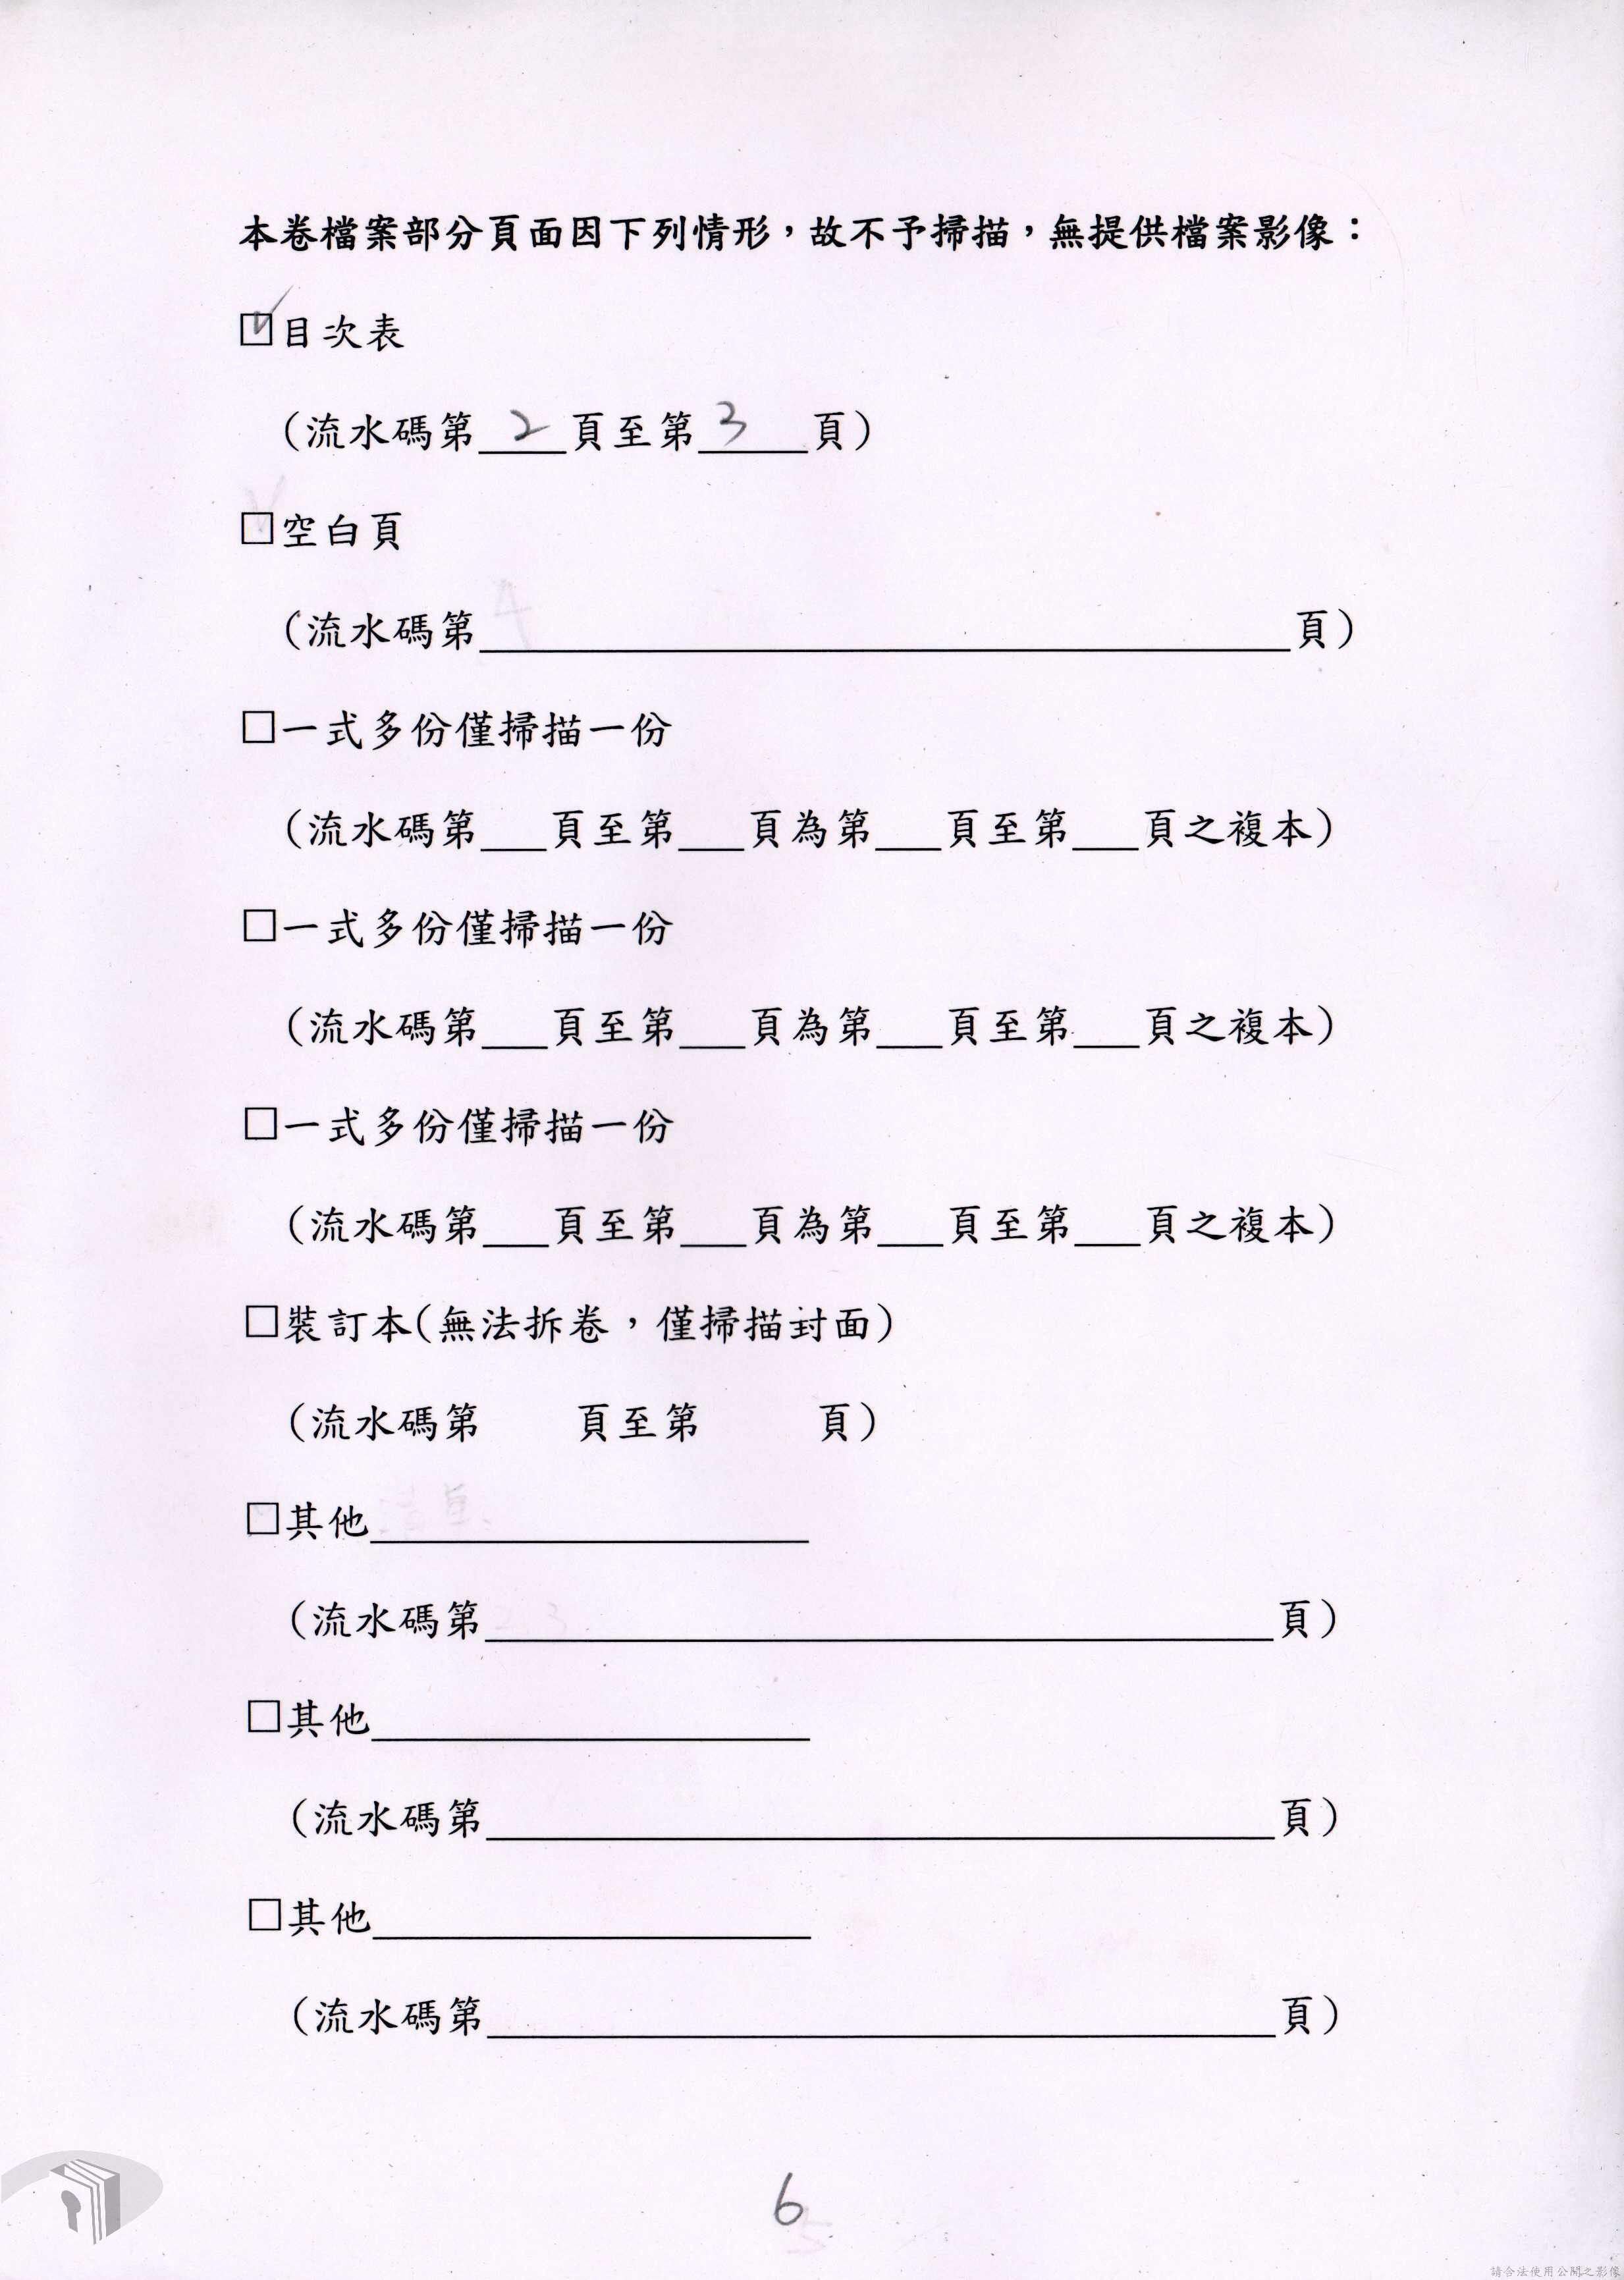 本卷檔案部分頁面因下列情形，故不予掃描，無提供檔案影像：
☑目次表
（流水碼第 2 頁至第 3 頁）
□空白頁
（流水碼第____頁）
□一式多份僅掃描一份
（流水碼第___頁至第___頁為第___頁至第___頁之複本）
□一式多份僅掃描一份
（流水碼第___頁至第___頁為第___頁至第___頁之複本）
□一式多份僅掃描一份
（流水碼第___頁至第___頁為第___頁至第___頁之複本）
□裝訂本（無法拆卷，僅掃描封面）
（流水碼第 頁至第 頁）
□其他____
（流水碼第____頁）
□其他____
（流水碼第____頁）
□其他____
（流水碼第____頁）
6
請合法使用公開之影像